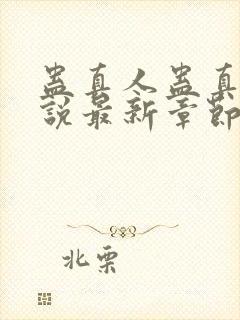 蛊真人蛊真
說最新章節
北栗